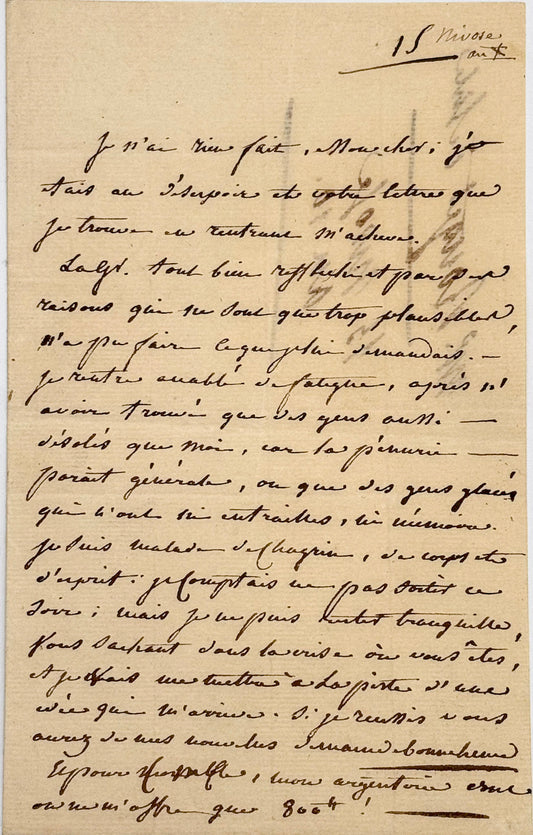 15 Nivose
an X
Je n'ai rien fait, Mon cher; je
étais au désespoir et votre lettre que
je trouve en rentrant m'acheve.
La Gd. tout bien réfléchi et par des
raisons qui ne sont que trop plausibles,
n'a pu faire ce que je lui demandais. —
je rentre accablé de fatigue, après n'
avoir trouvé que des gens aussi —
désolés que moi, car la pénurie —
parait générale, ou que des gens glacés
qui n'ont ni entrailles, ni mémoire.
je suis malade de chagrin, de corps et
d'esprit: je comptais ne pas sortir ce
soir; mais je ne puis rester tranquille,
vous sachant dans la crise où vous êtes,
et je vais me mettre à la piste d'une
idée qui m'arrive. Si je reussis vous
aurez de mes nouvelles demain de bonne heure
Et pour, mon argenterie
on ne m'offre que 800#!